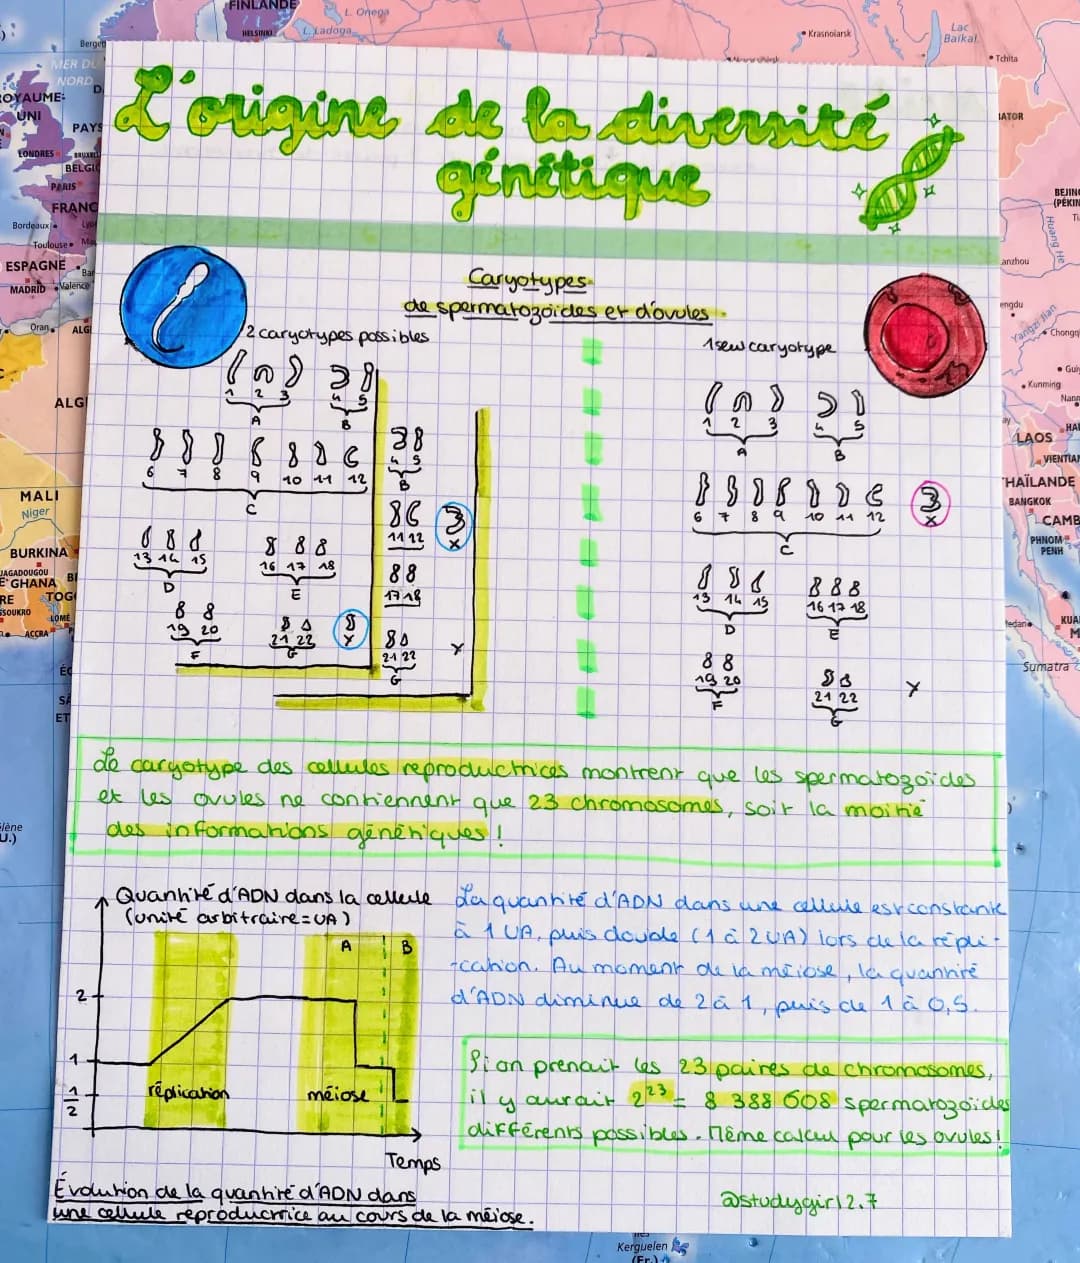 L'origine de la diversité
génétique
Caryotypes
de spermatozoïdes et d'ovules
2 caryotypes possibles
1 2 3
A
4 5
B
6 7 8 9 10 11 12
C
13 14 15
D
16 17 18
E
19 20
F
21 22
G
Y
4 5
B
11 12
X
17 18
21 22
G
Y
1 seul caryotype
1 2 3
A
4 5
B
6 7 8 9 10 11 12
C
X
13 14 15
D
16 17 18
E
19 20
F
21 22
G
Y
Le caryotype des cellules reproductrices montrent que les spermatozoïdes
et les ovules ne contiennent que 23 chromosomes, soit la moitié
des informations génétiques !
Quantité d'ADN dans la cellule
(unité arbitraire = UA)
A B
2
1
1/2
réplication
méiose
Temps
Évolution de la quantité d'ADN dans
une cellule reproductrice au cours de la méiose.
La quantité d'ADN dans une cellule est constante
à 1 UA, puis double (1 à 2 UA) lors de la répli-
-cation. Au moment de la méiose, la quantité
d'ADN diminue de 2 à 1, puis de 1 à 0,5.
Si on prenait les 23 paires de chromosomes,
il y aurait 2²³ = 8 388 608 spermatozoïdes
différents possibles. Même calcul pour les ovules !
@studygirl2.7
FINLANDE
HELSINKI
L. Onega
L. Ladoga
Krasnoïarsk
Lac
Baïkal
Tchita
MER DU
NORD
ROYAUME-
UNI
PAYS
LONDRES
BELGI
PARIS
FRANC
Bordeaux
Toulouse
ESPAGNE
MADRID
Valence
Oran
ALG
ALG
MALI
Niger
BURKINA
GHANA
TOGO
LOMÉ
ACCRA
BEIJING
(PÉKIN
Huang He
Yangzi Jian
Chongq
Kunming
LAOS
VIENTIAN
THAÏLANDE
BANGKOK
CAMB
PHNOM
PENH
KUA
Medan
Sumatra
Kerguelen
(Fr.)